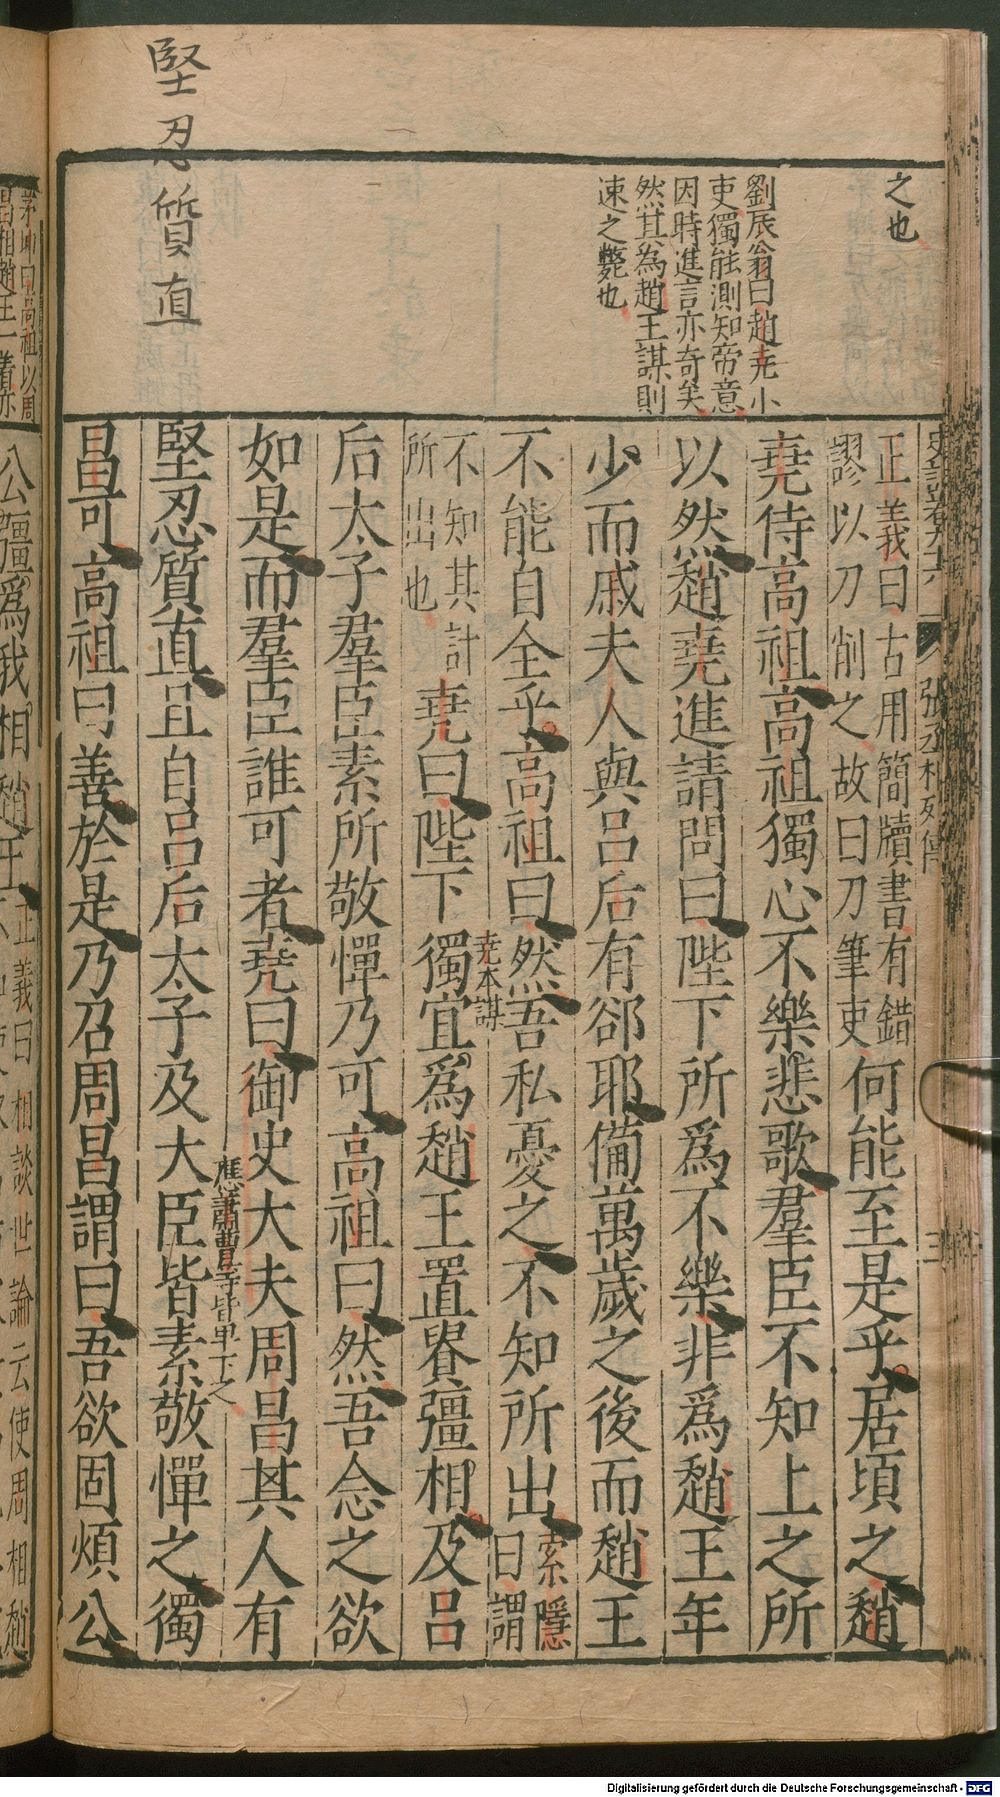 之也
劉辰翁曰趙尭小
吏獨能測知帝意
因時進言亦奇矣
然其為趙王謀則
速之斃也
堅忍質直
張丞相列傳
三
正義曰古用簡牘書有錯
謬以刀削之故曰刀筆吏
何能至是乎居頃之趙
堯侍高祖高祖獨心不樂悲歌羣臣不知上之所
以然趙堯進請問曰陛下所爲不樂非爲趙王年
少而戚夫人與呂后有郤耶備萬歲之後而趙王
不能自全乎高祖曰然吾私憂之不知所出
索隱
曰謂
不知其計
所出也
堯曰陛下獨宜爲趙王置貴彊相及呂
尭本謀
后太子羣臣素所敬憚乃可高祖曰然吾念之欲
如是而羣臣誰可者堯曰御史大夫周昌其人有
應蕭曹等皆卑下之
堅忍質直且自呂后太子及大臣皆素敬憚之獨
昌可高祖曰善於是乃召周昌謂曰吾欲固煩公
茅坤曰高祖以周
昌相趙王一着亦
公彊爲我相趙王
正義曰相談世論云使周相趙
Digitalisierung gefördert durch die Deutsche Forschungsgemeinschaft - DFG